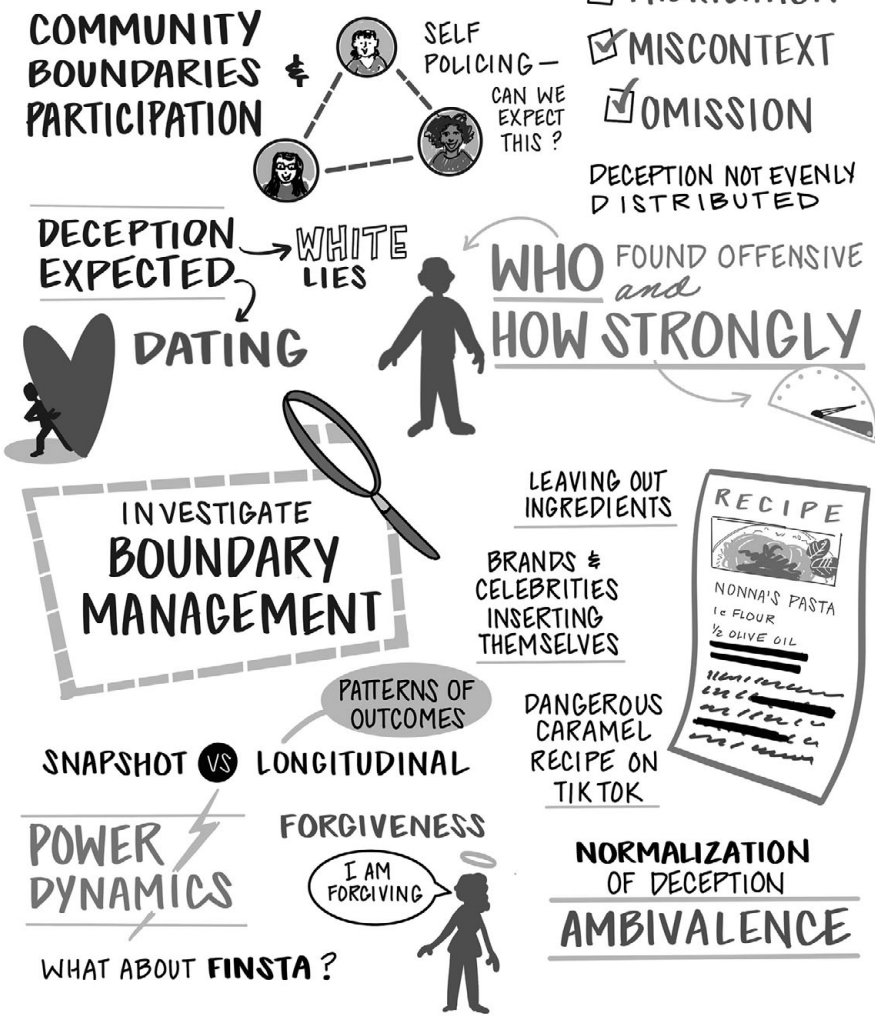 COMMUNITY
BOUNDARIES &
PARTICIPATION
SELF
POLICING—
CAN WE
EXPECT
THIS?
MISCONTEXT
OMISSION
DECEPTION NOT EVENLY
DISTRIBUTED
DECEPTION
EXPECTED
WHITE
LIES
DATING
WHO FOUND OFFENSIVE
and
HOW STRONGLY
INVESTIGATE
BOUNDARY
MANAGEMENT
LEAVING OUT
INGREDIENTS
BRANDS &
CELEBRITIES
INSERTING
THEMSELVES
DANGEROUS
CARAMEL
RECIPE ON
TIKTOK
RECIPE
NONNA'S PASTA
1c FLOUR
½ OLIVE OIL
PATTERNS OF
OUTCOMES
SNAPSHOT VS LONGITUDINAL
POWER
DYNAMICS
WHAT ABOUT FINSTA?
FORGIVENESS
I AM
FORGIVING
NORMALIZATION
OF DECEPTION
AMBIVALENCE